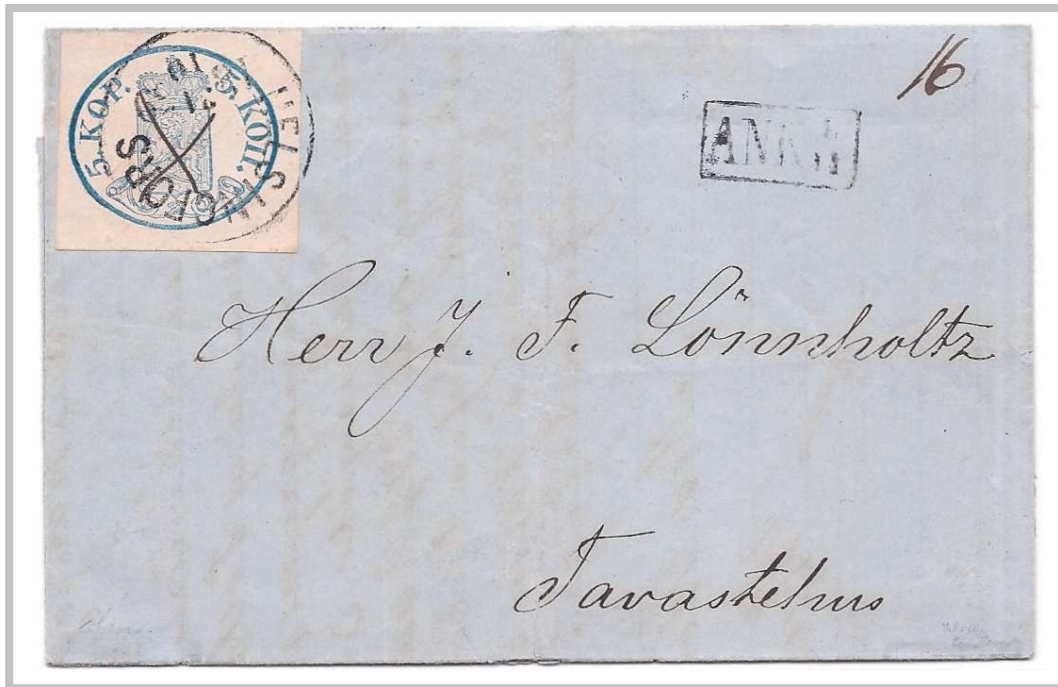 16
5. KOP. 5. КОП.
HELSINGFORS
ANK
Herr J. F. Lönnholtz
Tavastehus